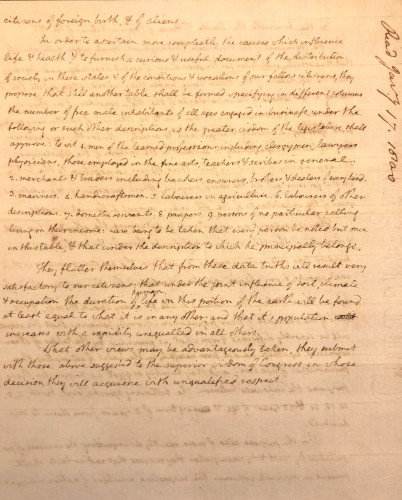 citizens of foreign birth, & of aliens.
In order to ascertain more compleatly the causes which influence
life & health, & to furnish a curious & useful document of the distribution
of society in these states, & of the conditions & vocations of our fellow citizens, they
propose that still another table shall be formed specifying in different columns
the number of free male inhabitants of all ages engaged in business, under the
following or such other descriptions as the greater wisdom of the legislature shall
approve. to wit, 1. men of the learned professions, including clergymen, lawyers
physicians, those employed in the fine arts, teachers & scribes in general.
2. merchants & traders including bankers, ensurers, brokers & dealers of every kind.
3. mariners. 4. handicraftsmen. 5. labourers in agriculture. 6. labourers of other
descriptions. 7. domestic servants. 8. paupers. 9. persons of no particular calling
living on their income: care being to be taken that every person be noted but once
in this table, & that under the description to which he principally belongs.
They flatter themselves that from these data truths will result very
satisfactory to our citizens; that under the joint influence of soil, climate
& occupation the duration of human life in this portion of the earth will be found
at least equal to what it is in any other: and that it's population
increases with a rapidity unequalled in all others.
What other views may be advantageously taken, they submit
with those above suggested to the superior wisdom of Congress in whose
decision they will acquiesce with unqualified respect
Read Jan'y 17. 1800